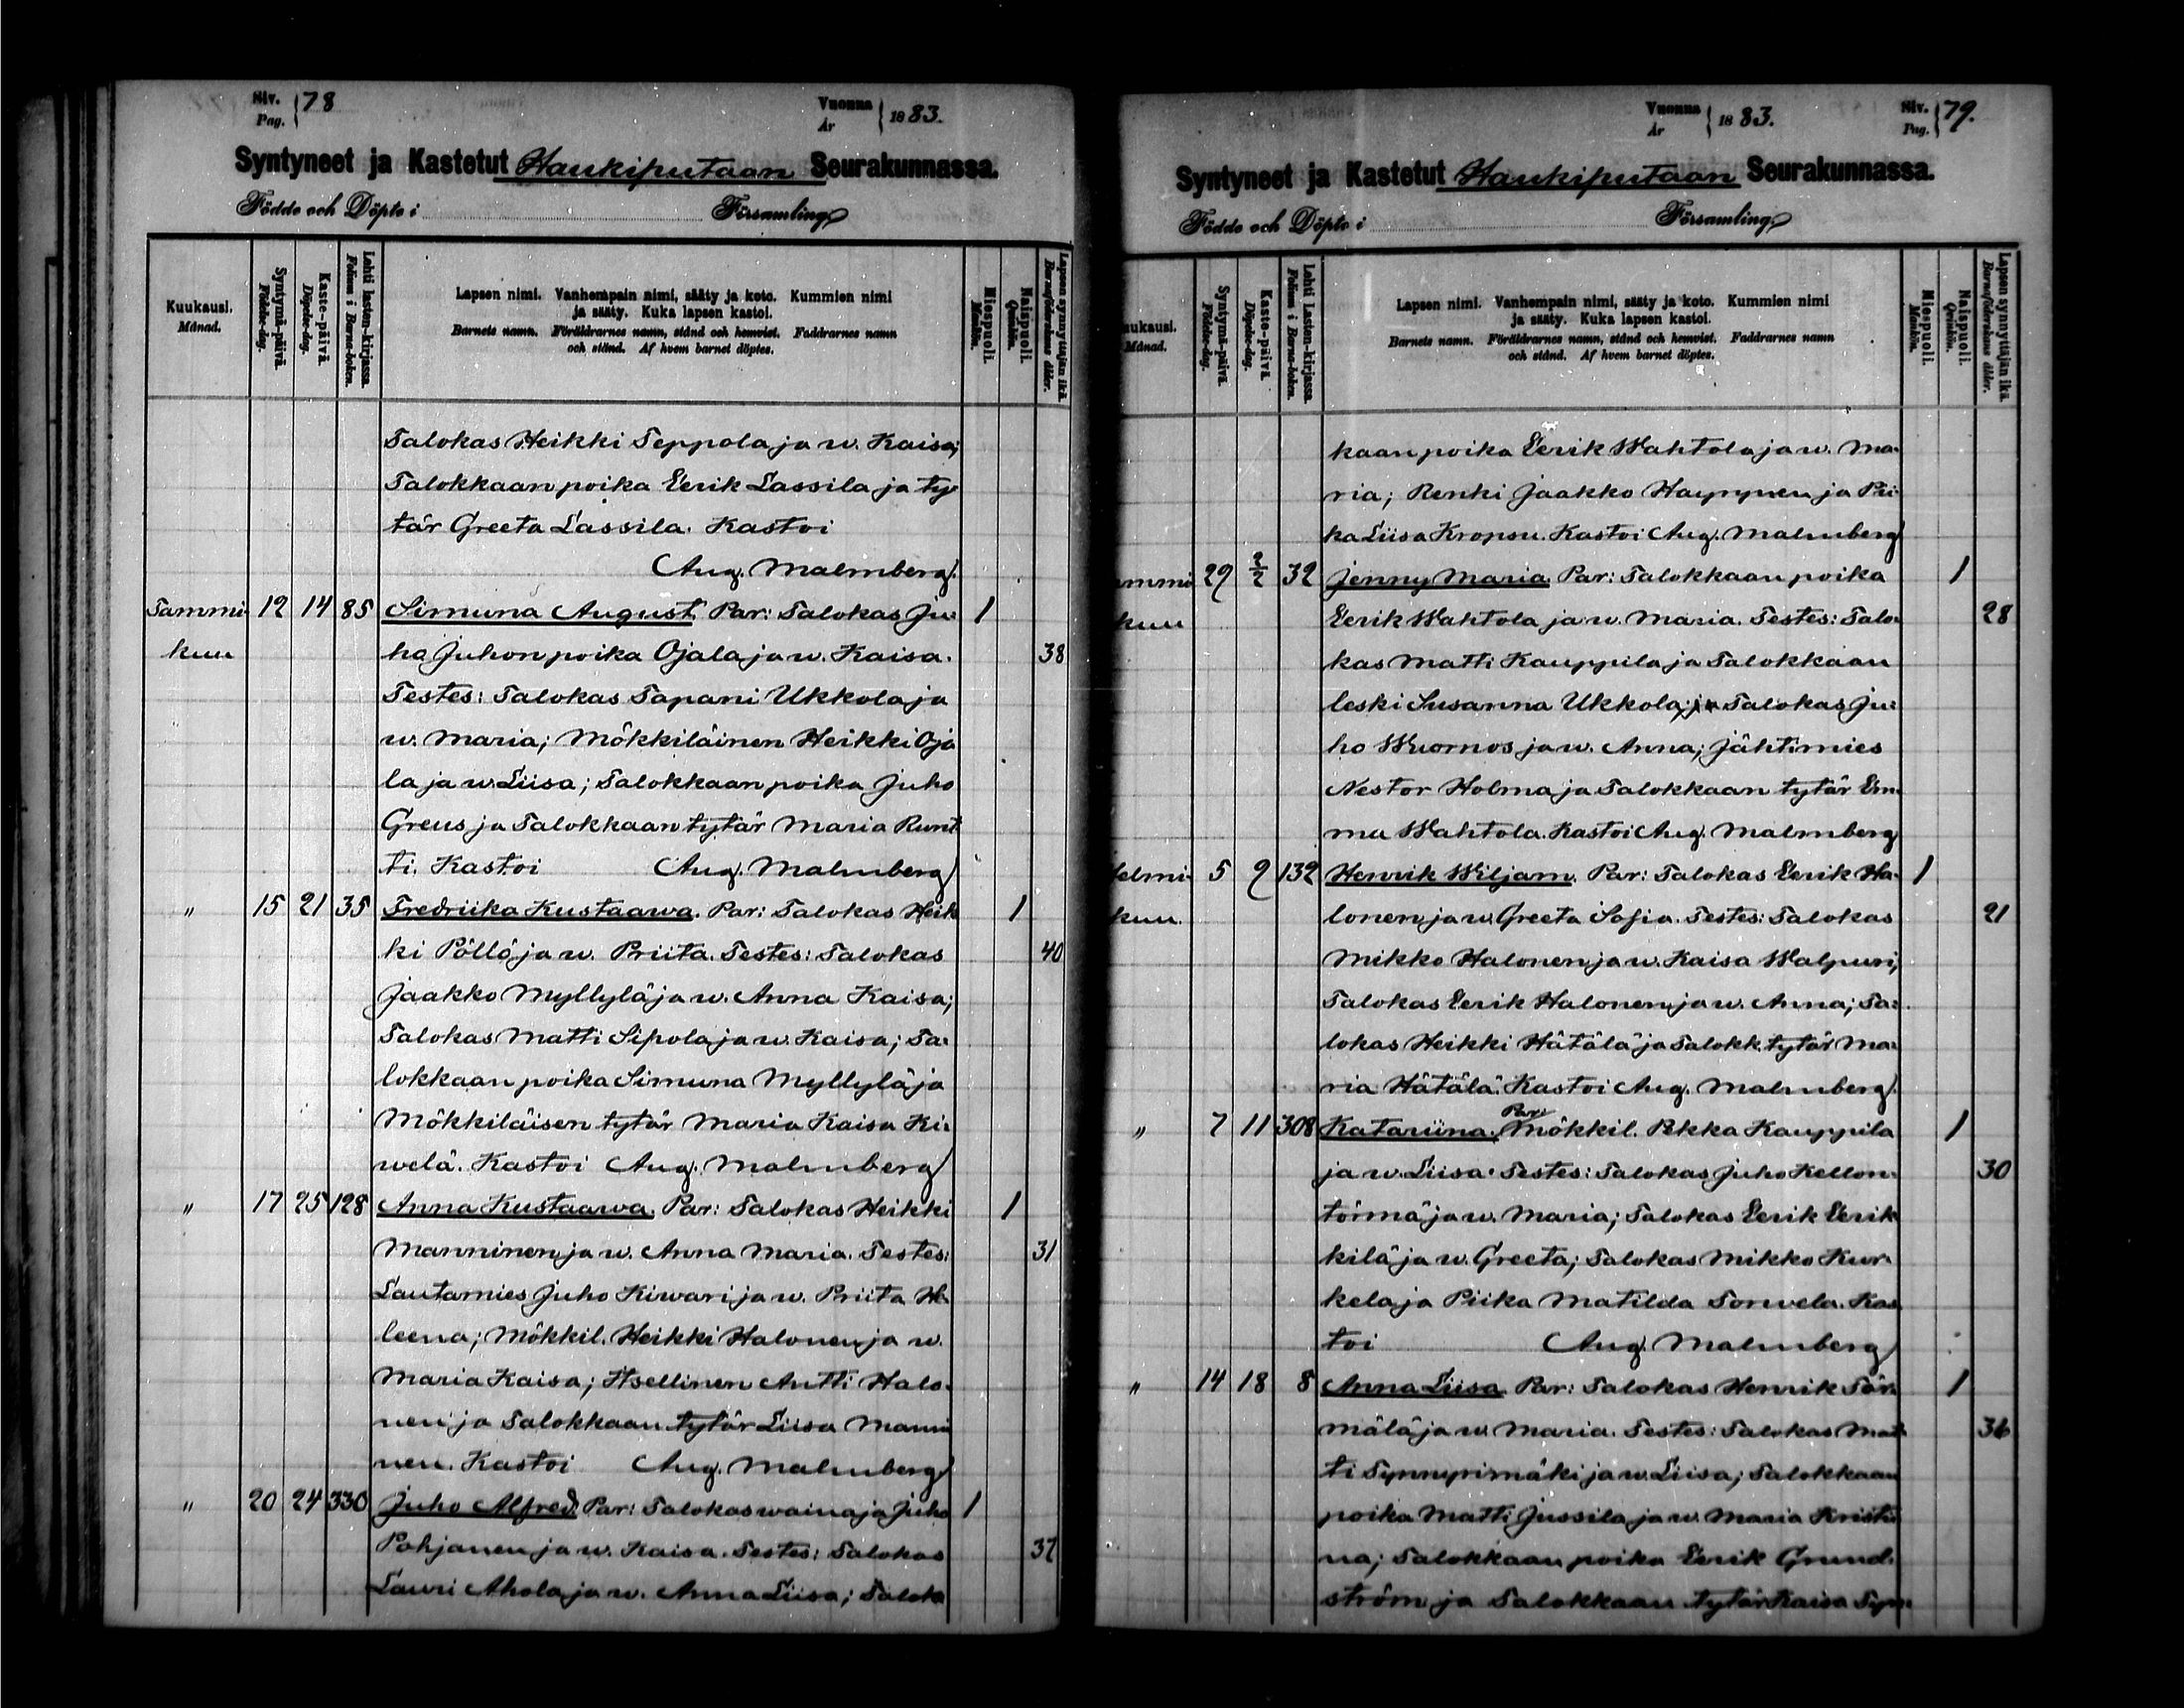 Siv. 78
Pag.
Vuonna 1883.
År
Syntyneet ja Kastetut Haukiputaan Seurakunnassa.
Födde och Döpte i Församling
Kuukausi.
Månad.
Syntymä-päivä.
Födelse-dag.
Kaste-päivä.
Döpelse-dag.
Lehti lasten-kirjassa.
Folium i Barna-boken.
Lapsen nimi. Vanhempain nimi, sääty ja koto. Kummien nimi
ja sääty. Kuka lapsen kastoi.
Barnets namn. Föräldrarnes namn, stånd och hemvist. Faddrarnes namn
och stånd. Af hvem barnet döptes.
Miespuoli.
Mankön.
Naispuoli.
Qvinkön.
Lapsen synnyttäjän ikä.
Barnaföderskans ålder.
Talokas Heikki Seppola ja w. Kaisa;
Talokkaan poika Eerik Lassila ja ty-
tär Greeta Lassila. Kastoi
Aug. Malmberg.
Tammi 12 14 85 Simuna August. Par: Talokas Ju- 1
kuu ho Juhon poika Ojala ja w. Kaisa. 38
Testes: Talokas Tapani Ukkola ja
w. Maria; Mökkiläinen Heikki Oja
la ja w. Liisa; Talokkaan poika Juho
Greus ja Talokkaan tytär Maria Runt
ti. Kastoi Aug. Malmberg
" 15 21 35 Fredriika Kustaawa. Par: Talokas Heik 1
ki Pöllö ja w. Priita. Testes: Talokas 40
Jaakko Myllylä ja w. Anna Kaisa;
Talokas Matti Sipola ja w. Kaisa; Ta-
lokkaan poika Simuna Myllylä ja
Mökkiläisen tytär Maria Kaisa Ki-
welä. Kastoi Aug. Malmberg
" 17 25 128 Anna Kustaawa. Par: Talokas Heikki 1
Manninen ja w. Anna Maria. Testes: 31
Lautamies Juho Kiwari ja w. Priita He
leena; Mökkil. Heikki Halonen ja w.
Maria Kaisa; Itsellinen Antti Halo-
nen ja Talokkaan tytär Liisa Manni
nen. Kastoi Aug. Malmberg
" 20 24 330 Juho Alfred. Par: Talokas wainaja Juho 1
Pohjanen ja w. Kaisa. Testes: Talokas 37
Lauri Ahola ja w. Anna Liisa; Talok
Vuonna 1883.
År
Siv. 79.
Pag.
Syntyneet ja Kastetut Haukiputaan Seurakunnassa.
Födde och Döpte i Församling
uukausi.
Månad.
Syntymä-päivä.
Födelse-dag.
Kaste-päivä.
Döpelse-dag.
Lehti Lasten-kirjassa.
Folium i Barna-boken.
Lapsen nimi. Vanhempain nimi, sääty ja koto. Kummien nimi
ja sääty. Kuka lapsen kastoi.
Barnets namn. Föräldrarnes namn, stånd och hemvist. Faddrarnes namn
och stånd. Af hvem barnet döptes.
Miespuoli.
Mankön.
Naispuoli.
Qvinkön.
Lapsen synnyttäjän ikä.
Barnaföderskans ålder.
kaan poika Eerik Wahtola ja w. Ma-
ria; Renki Jaakko Hayrynen ja Pii-
ka Liisa Kropsu. Kastoi Aug. Malmberg
ammi 29 2/2 32 Jenny Maria. Par: Talokkaan poika 1
kuu Eerik Wahtola ja w. Maria. Testes: Talo- 28
kas Matti Kauppila ja Talokkaan
leski Susanna Ukkola; Talokas Ju-
ho Wuornos ja w. Anna; Jähtimies
Nestor Holma ja Talokkaan tytär Em-
ma Wahtola. Kastoi Aug. Malmberg
Helmi 5 9 132 Henrik Wiljam. Par: Talokas Eerik Ha- 1
kuu lonen ja w. Greeta Sofia. Testes: Talokas 21
Mikko Halonen ja w. Kaisa Walpuri;
Talokas Eerik Halonen ja w. Anna; Ta-
lokas Heikki Hätälä ja Talokk. tytär Ma-
ria Hätälä. Kastoi Aug. Malmberg.
" 7 11 308 Katariina. Par: Mökkil. Pekka Kauppila 1
ja w. Liisa. Testes: Talokas Juho Kellon- 30
törmä ja w. Maria; Talokas Eerik Eerik
kilä ja w. Greeta; Talokas Mikko Kur-
kela ja Piika Matilda Torwela. Kas
toi Aug. Malmberg
" 14 18 8 Anna Liisa. Par: Talokas Henrik Tör- 1
mälä ja w. Maria. Testes: Talokas Mat- 36
ti Synnynmäki ja w. Liisa; Talokkaan
poika Matti Jussila ja w. Maria Kristii
na; Talokkaan poika Eerik Grund-
ström ja Talokkaan tytär Kaisa Syn